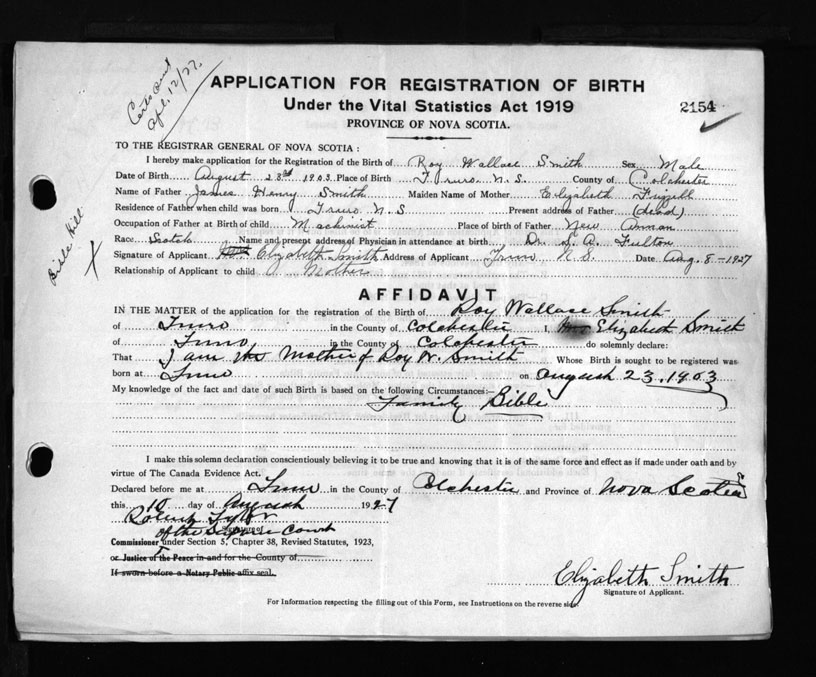 Certs sent
Apl. 12/27.
APPLICATION FOR REGISTRATION OF BIRTH
Under the Vital Statistics Act 1919
2154
PROVINCE OF NOVA SCOTIA.
TO THE REGISTRAR GENERAL OF NOVA SCOTIA :
I hereby make application for the Registration of the Birth of Roy Wallace Smith Sex Male
Date of Birth August 23rd 1903 Place of Birth Truro N.S. County of Colchester
Name of Father James Henry Smith Maiden Name of Mother Elizabeth Frizzell
Residence of Father when child was born Truro N.S Present address of Father (dead)
Occupation of Father at Birth of child Machinist Place of birth of Father New Annan
Race Scotch Name and present address of Physician in attendance at birth Dr. S. A. Fulton
Signature of Applicant Elizabeth Smith Address of Applicant Truro N.S. Date Aug. 8-1927
Relationship of Applicant to child Mother
Bible Hill
X
AFFIDAVIT
IN THE MATTER of the application for the registration of the Birth of Roy Wallace Smith
of Truro in the County of Colchester I, Elizabeth Smith
of Truro in the County of Colchester do solemnly declare:
That I am the Mother of Roy W. Smith Whose Birth is sought to be registered was
born at Truro on August 23. 1903
My knowledge of the fact and date of such Birth is based on the following Circumstances:—
Family Bible
I make this solemn declaration conscientiously believing it to be true and knowing that it is of the same force and effect as if made under oath and by
virtue of The Canada Evidence Act.
Declared before me at Truro in the County of Colchester and Province of Nova Scotia
this 10 day of August 1927
Signature of
of the Supreme Court
Commissioner under Section 5, Chapter 38, Revised Statutes, 1923,
or Justice of the Peace in and for the County of
If sworn before a Notary Public affix seal.
Elizabeth Smith
Signature of Applicant.
For Information respecting the filling out of this Form, see Instructions on the reverse side.